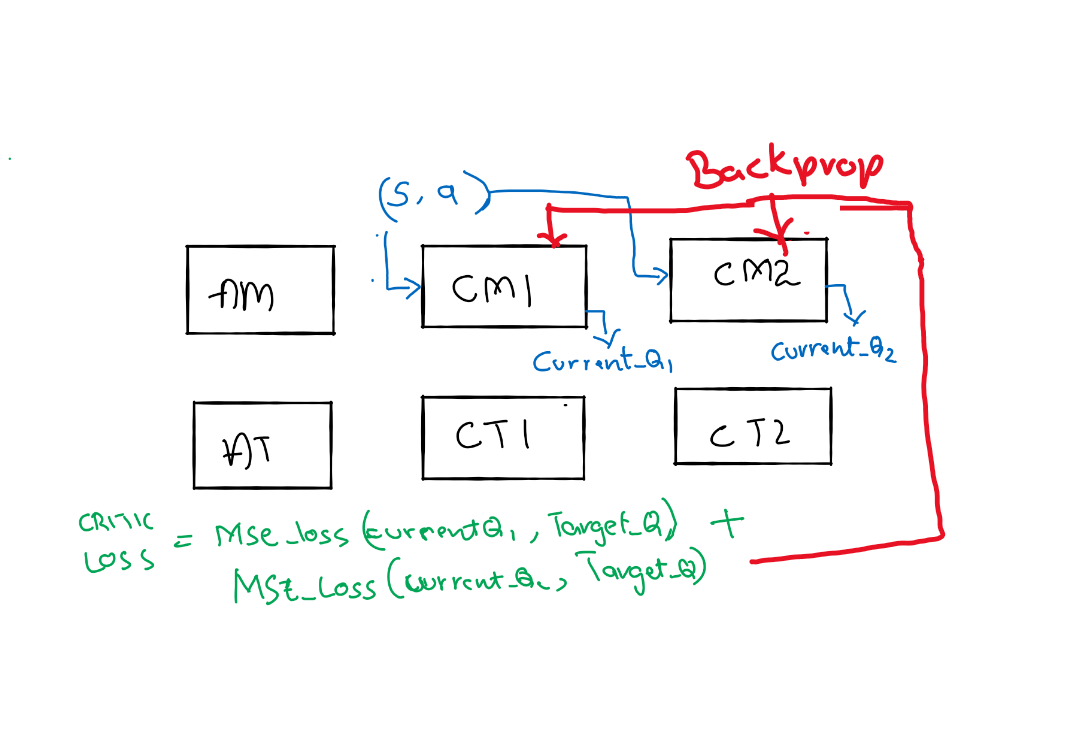 Backprop
(s, a)
AM
CM1
CM2
Current_Q1
Current_Q2
AT
CT1
CT2
CRITIC LOSS = MSE_loss (currentQ1, Target_Q) +
MSE_Loss (current_Q2, Target_Q)